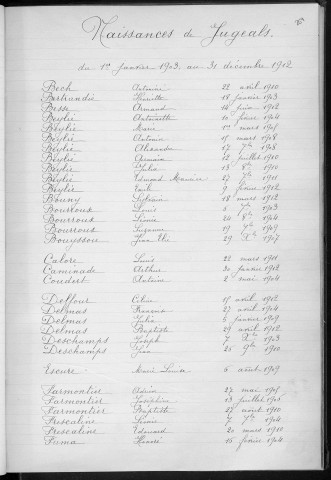 Naissances de Jugeals.
du 1er janvier 1903, au 31 décembre 1912
Bech Antoine 22 avril 1910
Bertrandie Henriette 18 janvier 1903
Besse Armand 14 juin 1912
Beylie Antoinette 10 février 1904
Beylie Marie 1er mars 1905
Beylie Antonin 15 mars 1908
Beylie Alexandre 17 7bre 1908
Beylie Germain 12 juillet 1910
Beylie Julia 13 8bre 1910
Beylie Edmond Maurice 27 7bre 1911
Beylie Emile 9 février 1912
Bouny Sylvain 18 mars 1912
Bourroux Louis 5 1903
Bourroux Léonie 24 1904
Bourroux Suzanne 19 1909
Bouyssou Jean 29 Xbre 1907
Calore Louis 22 mars 1911
Caminade Arthur 30 janvier 1912
Coudert Antoine 2 mai 1904
Delfour Céline 15 avril 1912
Delmas François 27 avril 1904
Delmas Julia 5 janvier 1909
Delmas Baptiste 29 avril 1912
Deschamps Joseph 7 Xbre 1903
Deschamps Jean 25 9bre 1910
Escure Marie Louisa 6 août 1909
Farmontier Adrien 27 mai 1905
Farmontier Joséphine 13 juillet 1905
Farmontier Baptiste 27 août 1910
Frescaline Léonie 7 7bre 1904
Frescaline Edouard 20 mars 1910
Fuma Honoré 15 février 1904